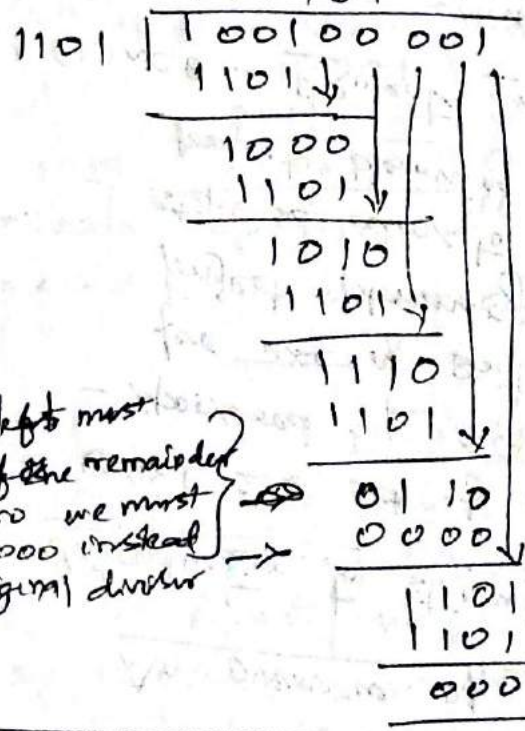 1101 | 100100 001
1101
1000
1101
1010
1101
1110
1101
left most
remainder 0110
we must
000 instead 0000
divisor
1101
1101
000